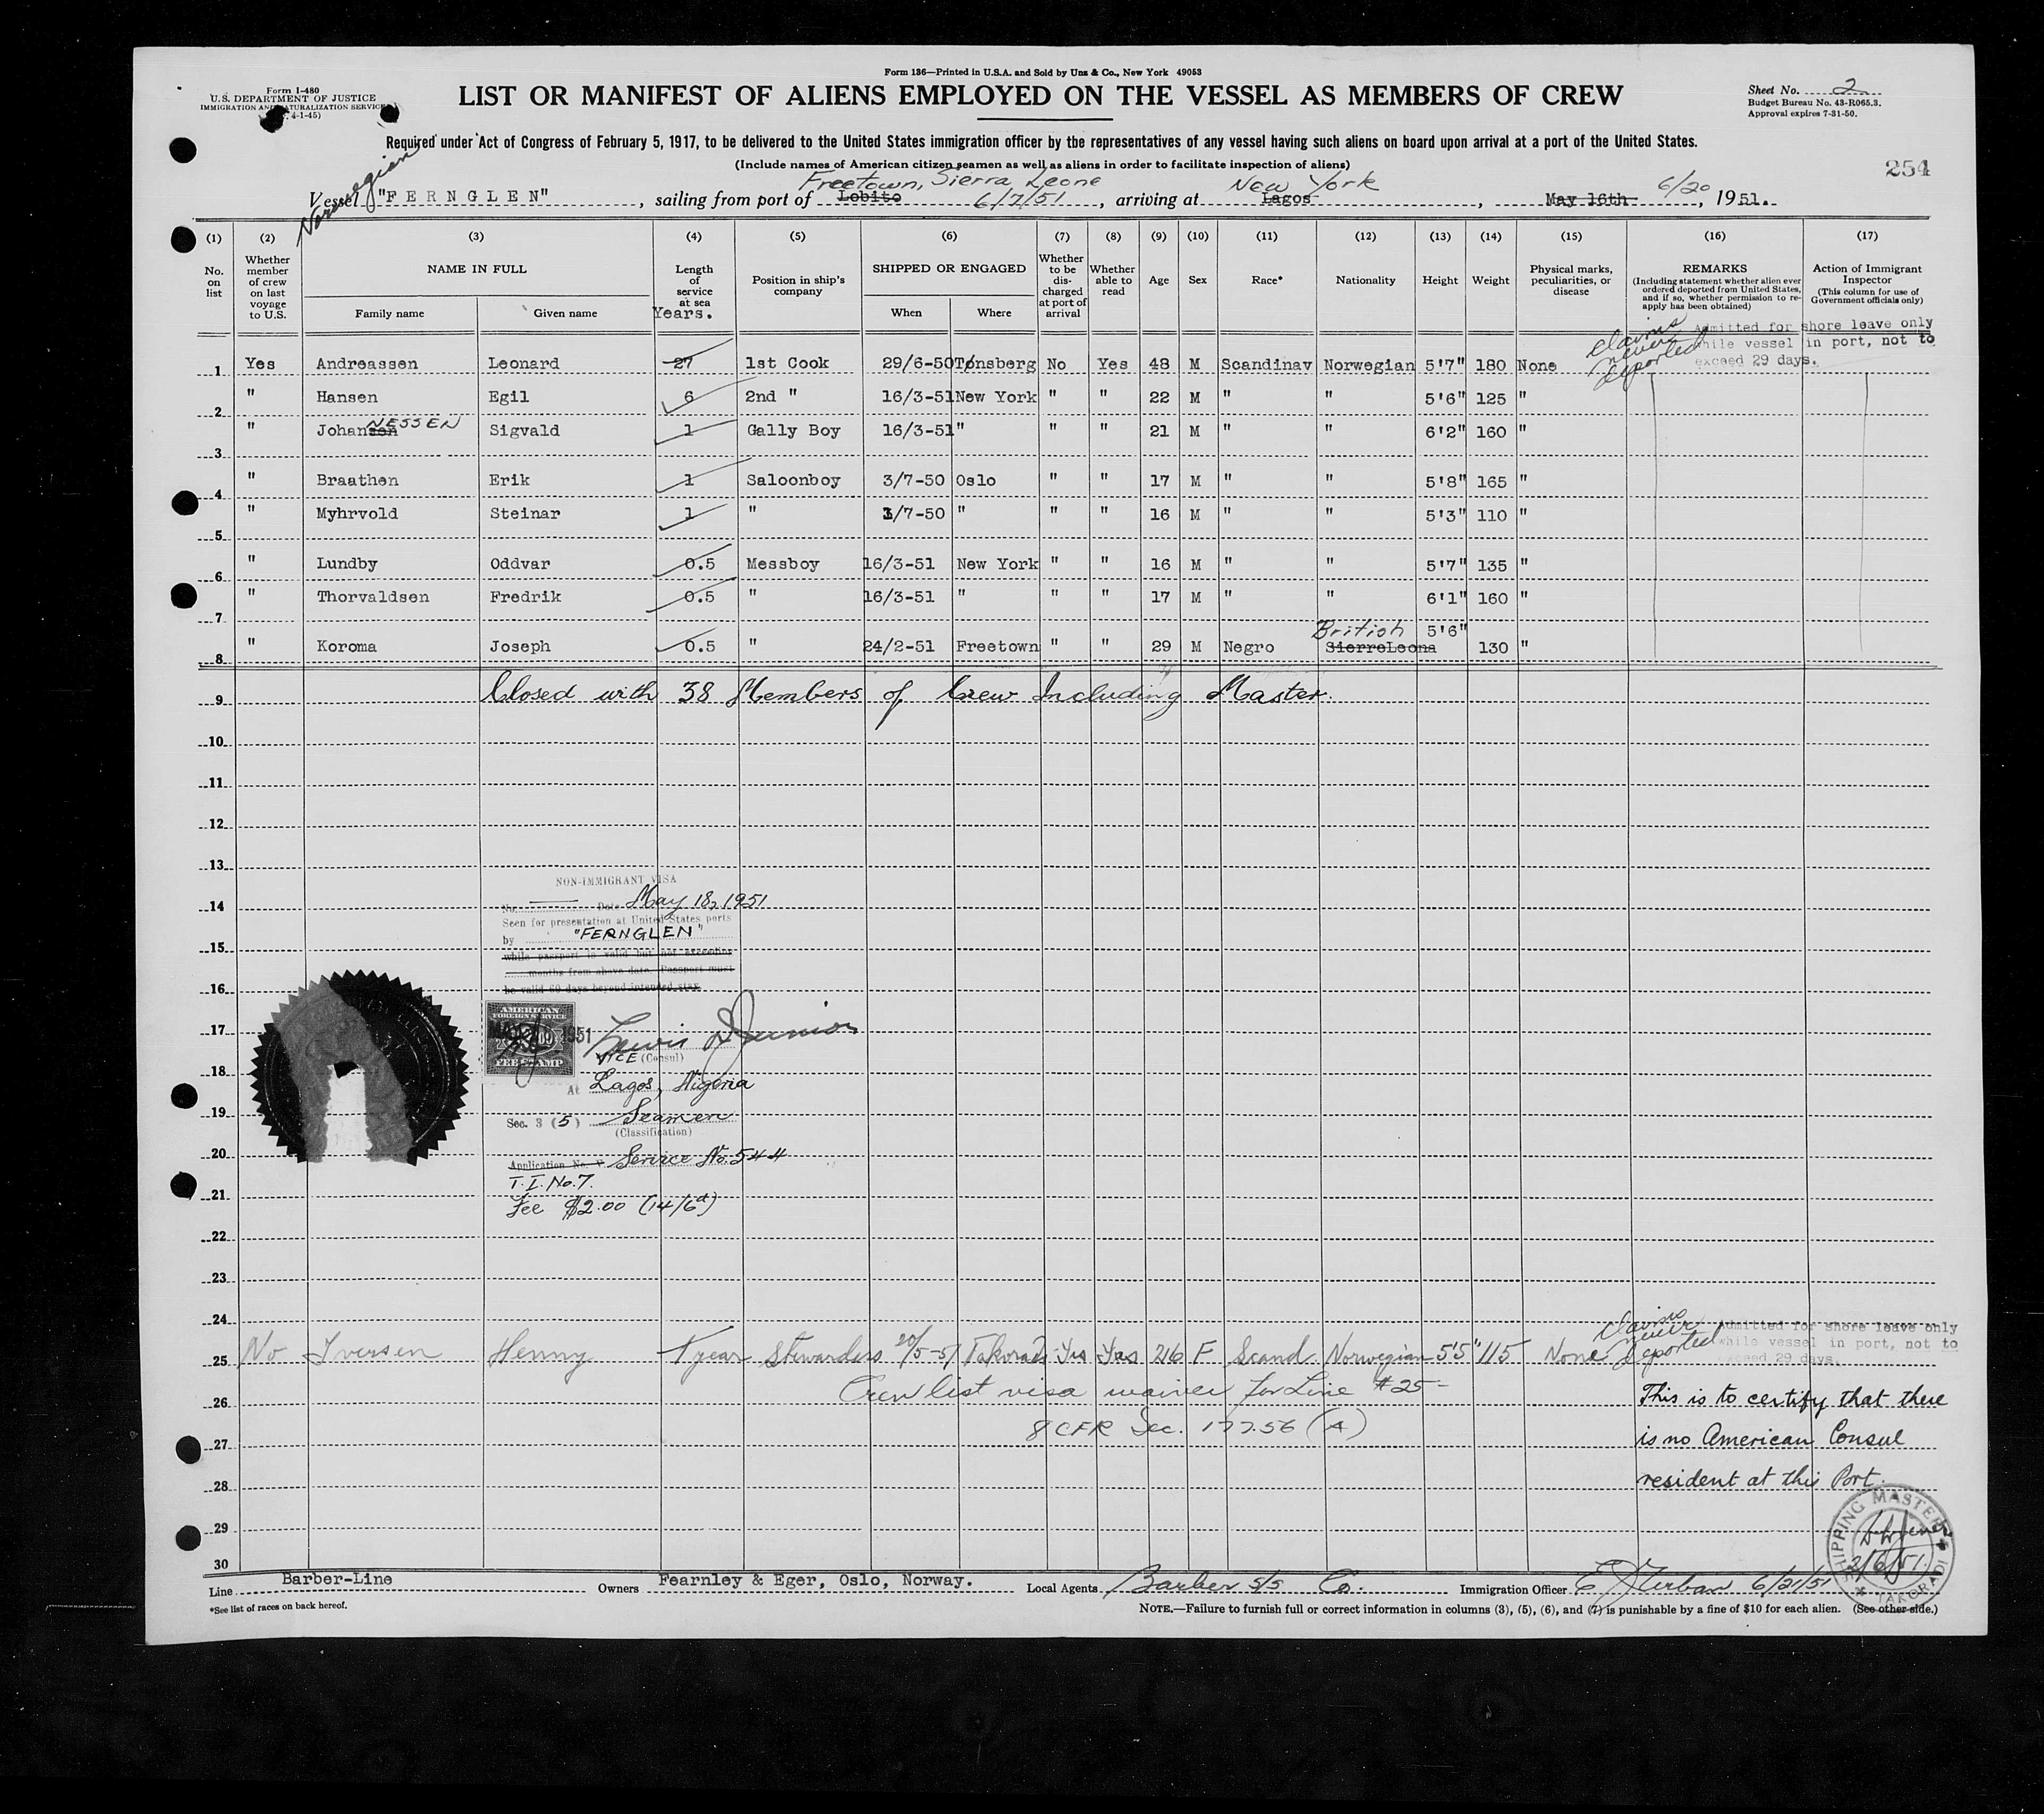 Form 136—Printed in U.S.A. and Sold by Unz & Co., New York 49053
Form I-480
U.S. DEPARTMENT OF JUSTICE
IMMIGRATION AND NATURALIZATION SERVICE
4-1-45)
LIST OR MANIFEST OF ALIENS EMPLOYED ON THE VESSEL AS MEMBERS OF CREW
Sheet No. 2
Budget Bureau No. 43-R065.3.
Approval expires 7-31-50.
Required under Act of Congress of February 5, 1917, to be delivered to the United States immigration officer by the representatives of any vessel having such aliens on board upon arrival at a port of the United States.
(Include names of American citizen seamen as well as aliens in order to facilitate inspection of aliens)
254
Norwegian
Freetown, Sierra Leone New York 6/20
Vessel "FERNGLEN", sailing from port of Lobito 6/7/51, arriving at Lagos, May 16th, 1951.
(1) (2) (3) (4) (5) (6) (7) (8) (9) (10) (11) (12) (13) (14) (15) (16) (17)
No. on list
Whether member of crew on last voyage to U.S.
NAME IN FULL
Family name
Given name
Length of service at sea
Years.
Position in ship's company
SHIPPED OR ENGAGED
When
Where
Whether to be discharged at port of arrival
Whether able to read
Age
Sex
Race*
Nationality
Height
Weight
Physical marks, peculiarities, or disease
REMARKS
(Including statement whether alien ever ordered deported from United States, and if so, whether permission to reapply has been obtained)
Action of Immigrant Inspector
(This column for use of Government officials only)
claims never deported
Admitted for shore leave only
while vessel in port, not to
exceed 29 days.
1 Yes Andreassen Leonard 27 1st Cook 29/6-50 Tønsberg No Yes 48 M Scandinav Norwegian 5'7" 180 None
2 " Hansen Egil 6 2nd " 16/3-51 New York " " 22 M " " 5'6" 125 "
NESSEN
3 " Johansen Sigvald 1 Gally Boy 16/3-51 " " " 21 M " " 6'2" 160 "
4 " Braathen Erik 1 Saloonboy 3/7-50 Oslo " " 17 M " " 5'8" 165 "
5 " Myhrvold Steinar 1 " 3/7-50 " " " 16 M " " 5'3" 110 "
6 " Lundby Oddvar 0.5 Messboy 16/3-51 New York " " 16 M " " 5'7" 135 "
7 " Thorvaldsen Fredrik 0.5 " 16/3-51 " " " 17 M " " 6'1" 160 "
British 5'6"
8 " Koroma Joseph 0.5 " 24/2-51 Freetown " " 29 M Negro SierreLeona 130 "
9 Closed with 38 Members of Crew Including Master.
10
11
12
13
NON-IMMIGRANT VISA
14 No. Date May 18, 1951
Seen for presentation at United States ports
by "FERNGLEN"
15
while passport is valid but not exceeding
months from above date. Passport must
be valid 60 days beyond intended stay
16
AMERICAN
FOREIGN SERVICE
1951
FEE STAMP
17
VICE (Consul)
18
At Lagos, Nigeria
19
Sec. 3 (5) Seamen
(Classification)
20
Application No. V Service No. 544
T.I. No.7.
21
Fee $2.00 (14/6d)
22
23
24
claims never deported
Admitted for shore leave only
while vessel in port, not to
exceed 29 days.
25 No Iversen Henny 1 year Stewardess 20/5-51 Takoradi Yes Yes 26 F Scand. Norwegian 5'5" 115 None
Crew list visa waiver for Line #25-
26
8 CFR Sec. 177.56 (A)
This is to certify that there
27
is no American Consul
28
resident at this Port.
29
30
SHIPPING MASTER
2/6/51
TAKORADI
Line Barber-Line Owners Fearnley & Eger, Oslo, Norway. Local Agents Barber S/S Co. Immigration Officer 6/21/51
*See list of races on back hereof.
NOTE.—Failure to furnish full or correct information in columns (3), (5), (6), and (7) is punishable by a fine of $10 for each alien. (See other side.)